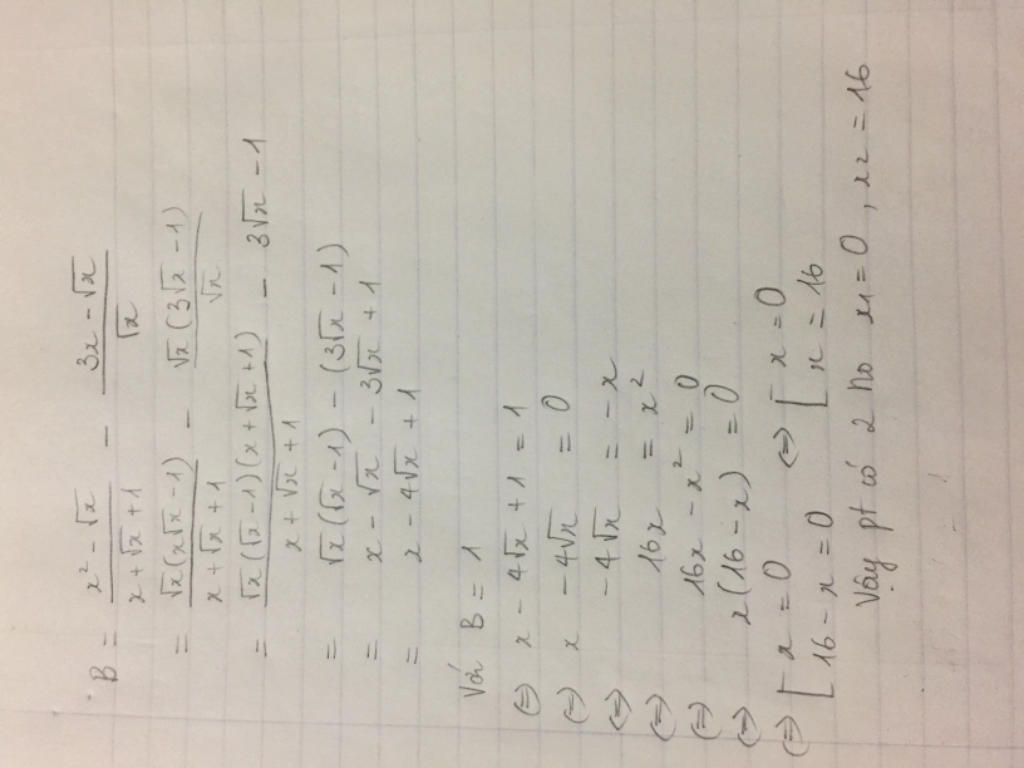 B = \frac{x^2 - \sqrt{x}}{x + \sqrt{x} + 1} - \frac{3x - \sqrt{x}}{\sqrt{x}}
= \frac{\sqrt{x}(x\sqrt{x} - 1)}{x + \sqrt{x} + 1} - \frac{\sqrt{x}(3\sqrt{x} - 1)}{\sqrt{x}}
= \frac{\sqrt{x}(\sqrt{x} - 1)(x + \sqrt{x} + 1)}{x + \sqrt{x} + 1} - 3\sqrt{x} - 1
= \sqrt{x}(\sqrt{x} - 1) - (3\sqrt{x} - 1)
= x - \sqrt{x} - 3\sqrt{x} + 1
= x - 4\sqrt{x} + 1
Với B = 1
(=) x - 4\sqrt{x} + 1 = 1
(=) x - 4\sqrt{x} = 0
(=) - 4\sqrt{x} = - x
(=) 16x = x^2
(=) 16x - x^2 = 0
(=) x(16 - x) = 0
(=) [ x = 0 (=) [ x = 0
16 - x = 0 x = 16
Vậy pt có 2 no x1 = 0, x2 = 16